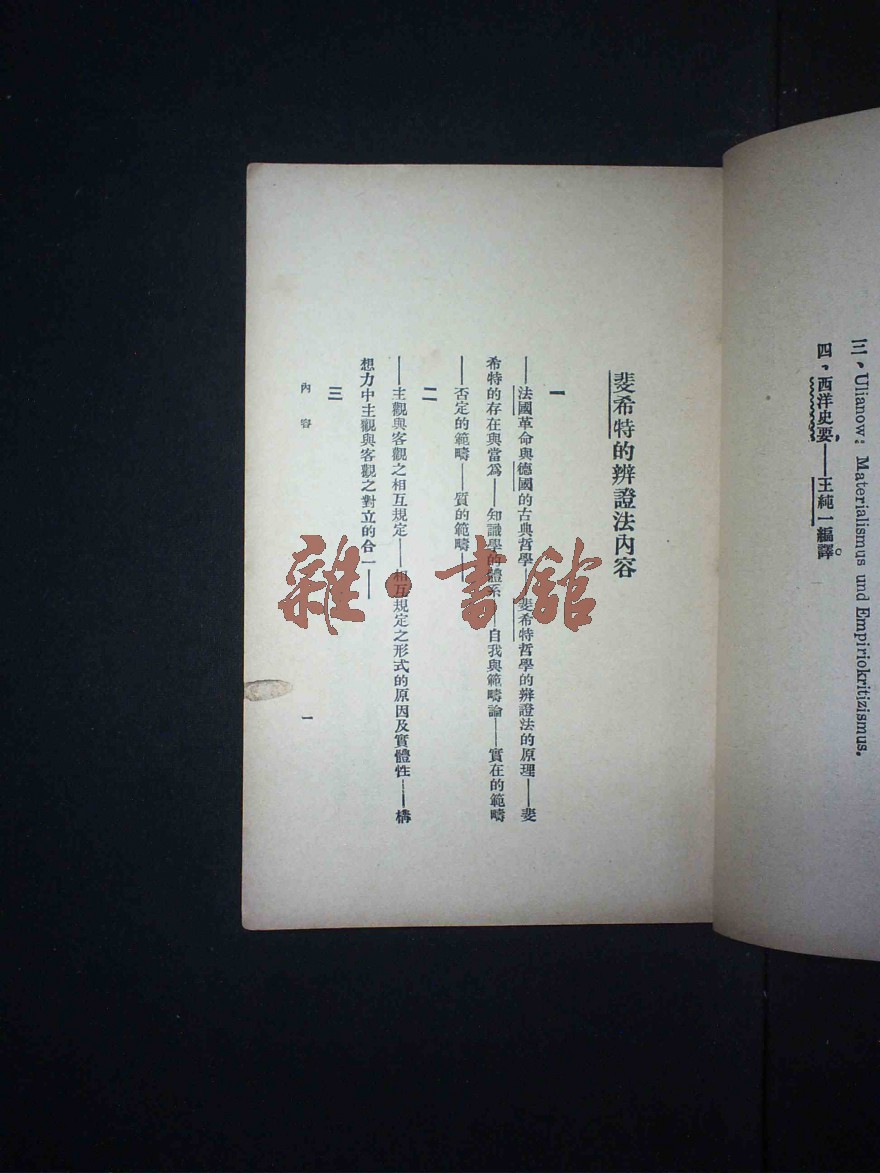 三、Ulianow: Materialismus und Empiriokritizismus.
四、西洋史要——王純一編譯。
斐希特的辨證法內容
一
——法國革命與德國的古典哲學——斐希特哲學的辨證法的原理——斐
希特的存在與當爲——知識學的體系——自我與範疇論——實在的範疇
——否定的範疇——質的範疇——
二
——主觀與客觀之相互規定——相互規定之形式的原因及實體性——構
想力中主觀與客觀之對立的合一——
三
內容
一
雜·書館